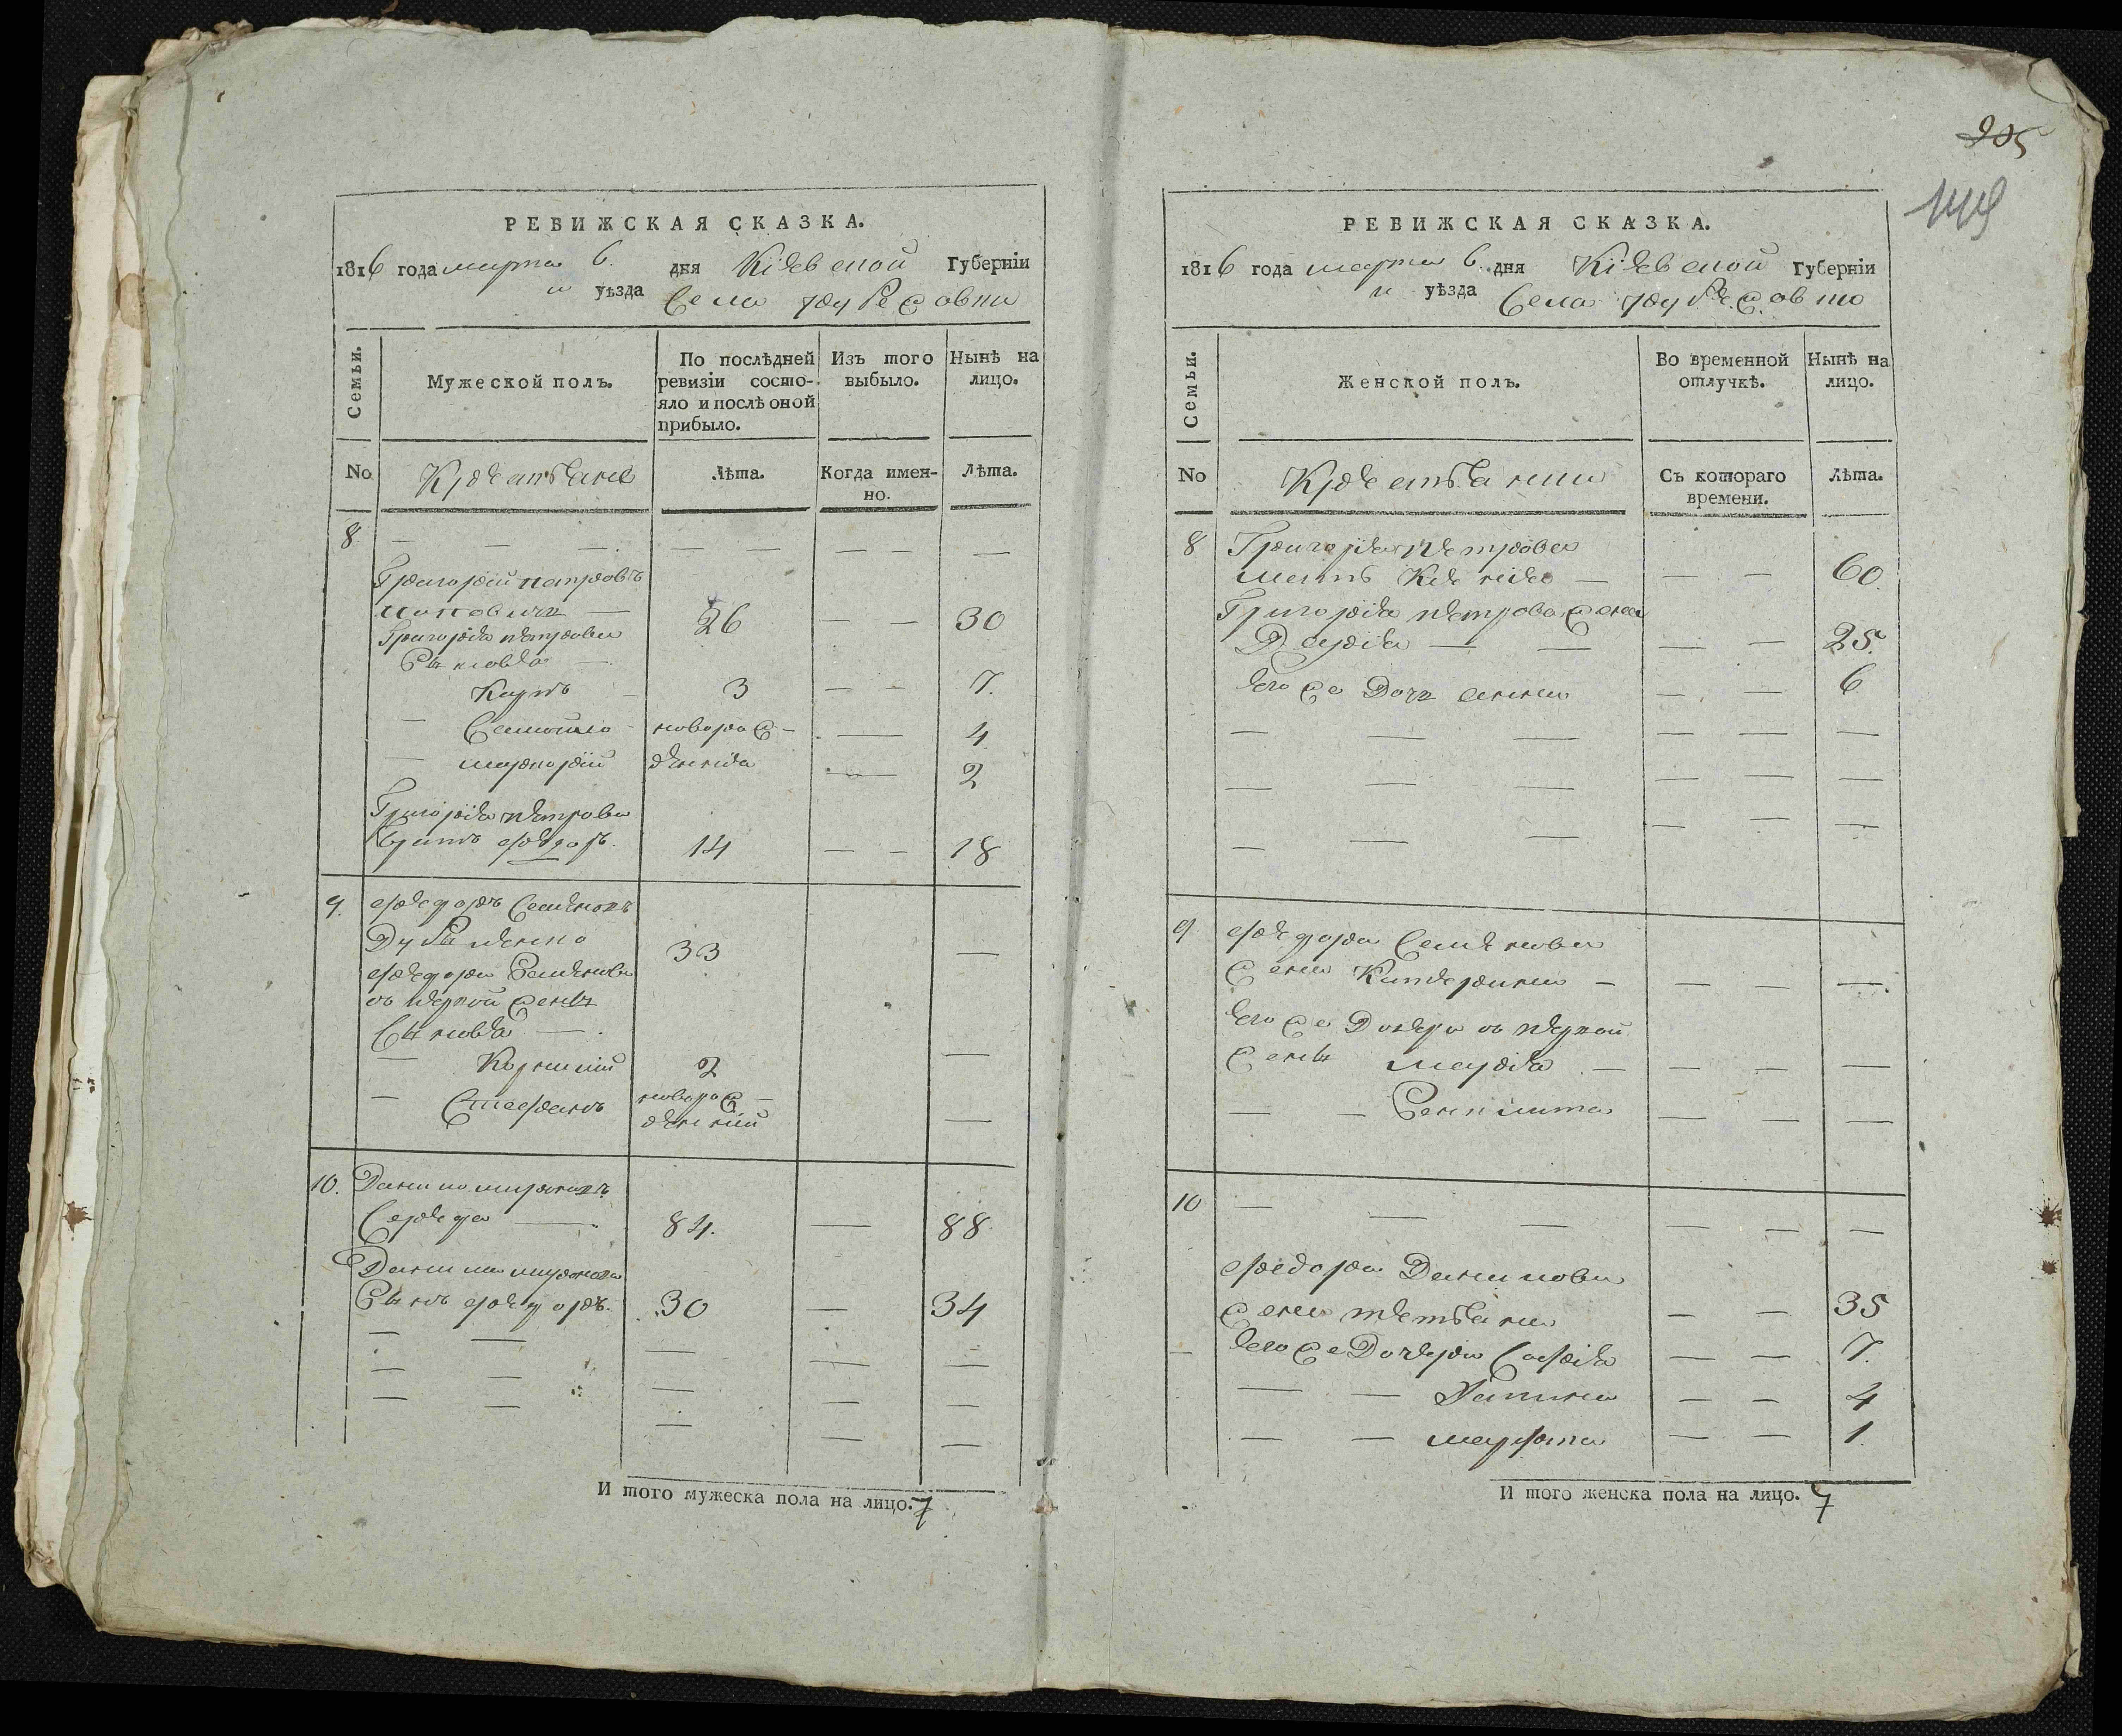 205
149
РЕВИЖСКАЯ СКАЗКА.
1816 года марта 6. дня Кіевской Губерніи
и уѣзда Села
Семьи.
Мужеской полъ.
По послѣдней ревизіи состо-
яло и послѣ оной прибыло.
Изъ того выбыло.
Нынѣ на лицо.
No
Крестьяне
Лѣта.
Когда имен-
но.
Лѣта.
8 — — — — — — — —
Григорій петровъ
поповичъ — 26 — — 30
Григорія петрова
Сыновья —
Карпъ — 3 — — 7.
— Самойло - новорож- — 4
— маркорій денніе — 2
Григорія петрова
братъ федоръ. 14 — — 18
9. федоръ Семеновъ
33 —
федора Семенова
съ первой жены
Сыновья —
— Корнилій 2 —
— Стефанъ новорож-
денній —
10. Данило мироновъ
Середа — 84. — 88.
Данила миронова
Сынъ федоръ. 30 — 34
— — — — —
— — — — —
— — — — —
И того мужеска пола на лицо. 7
РЕВИЖСКАЯ СКАЗКА.
1816 года марта 6 дня Кіевской Губерніи
и уѣзда Села
Семьи.
Женской полъ.
Во временной отлучкѣ.
Нынѣ на лицо.
No
Крестьянки
Съ котораго времени.
Лѣта.
8 Григорія петрова
мать Ксенія — — — 60.
Григорія петрова жена
Дарія — — — — 25.
его же дочь анна — — 6
— — — — — —
— — — — — —
— — — — — —
9 федора Семенова
жена Катерина — — — —.
его же Дочери съ первой
жены марія — — — —
— — — — —
10 — — — — — —
федора Данилова
жена тетяна — — 35
— его же Дочери Софія — — 7.
— — — — 4
— — марфа — — 1.
И того женска пола на лицо. 7